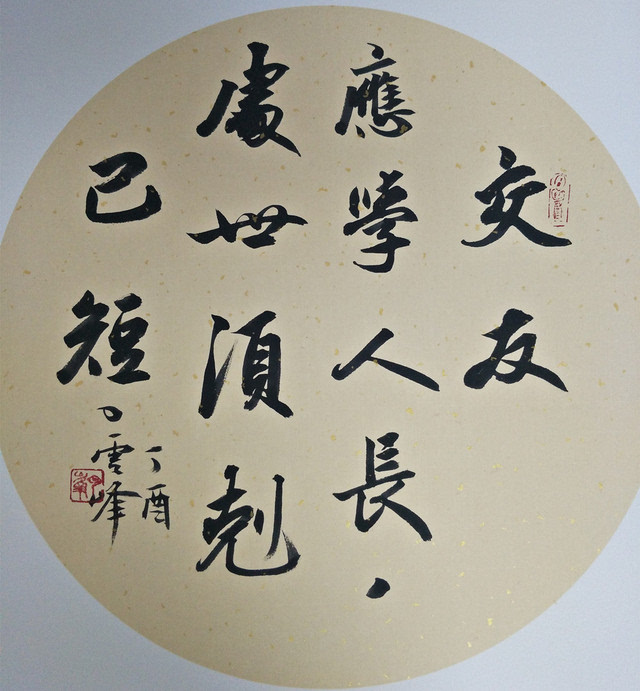 交友
應學人長，
處世須剋
己短。
丁酉
雲峰